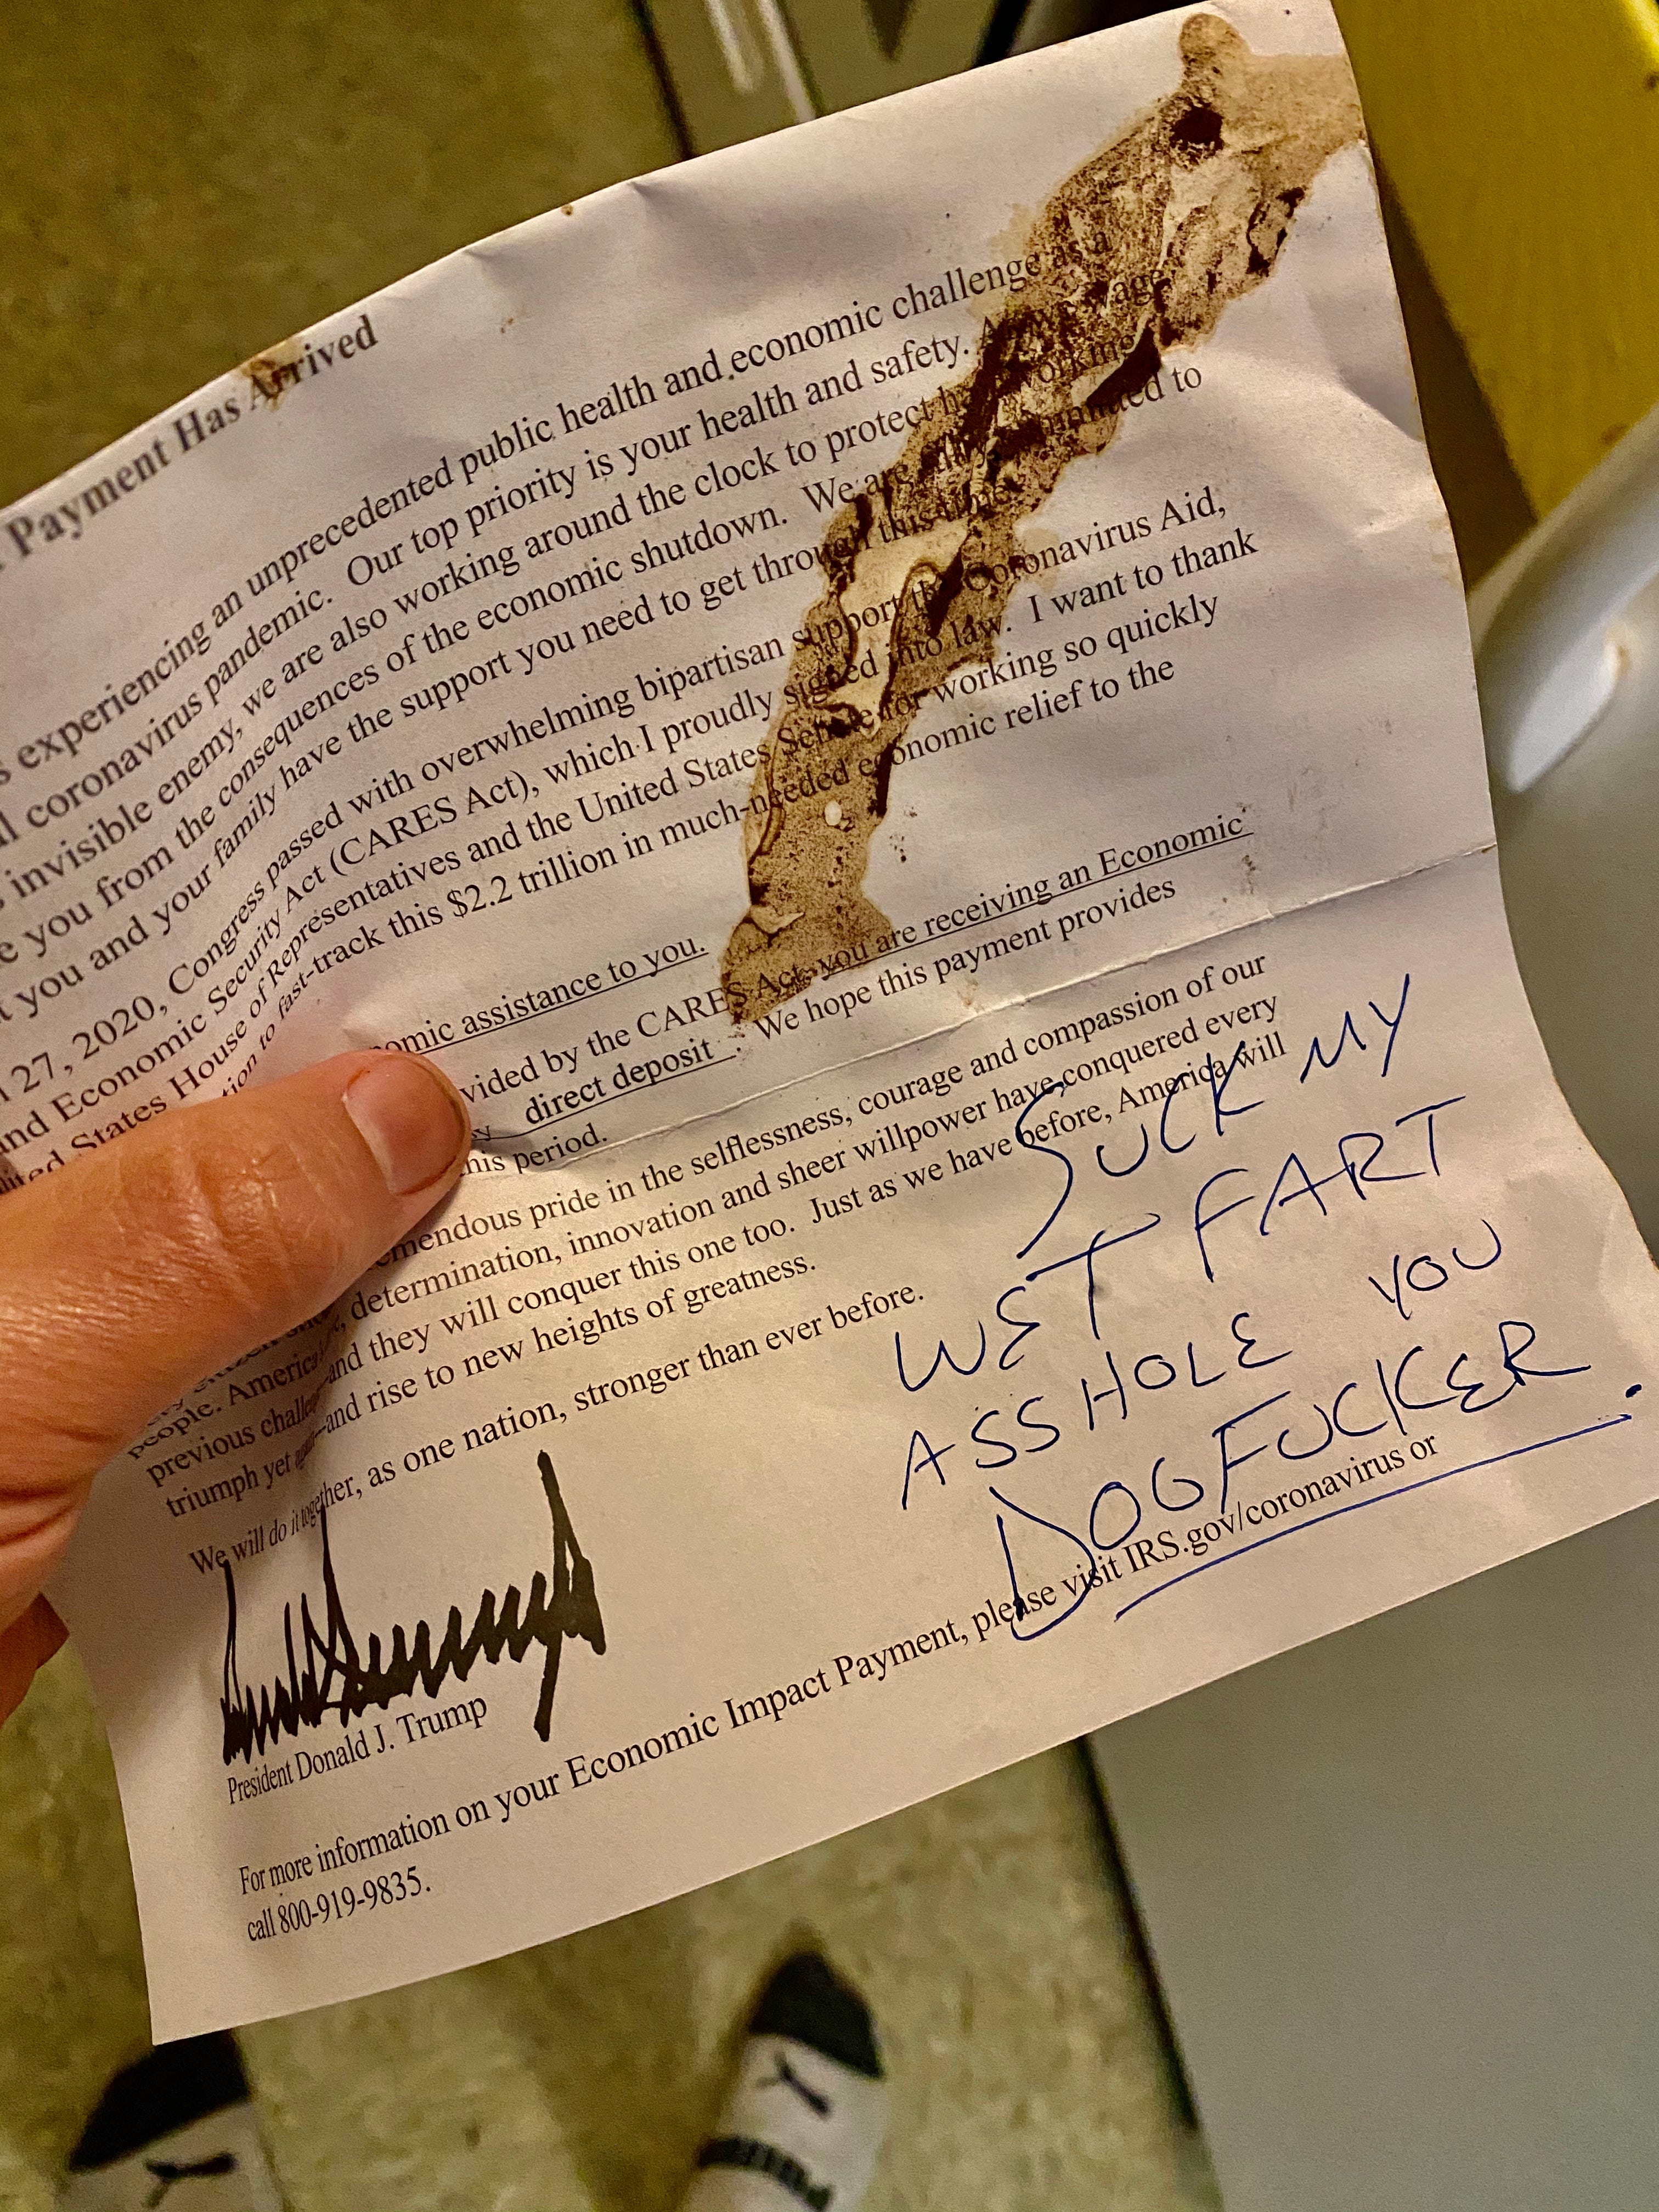 Payment Has Arrived
experiencing an unprecedented public health and economic challenge as a
coronavirus pandemic. Our top priority is your health and safety. As we wage
invisible enemy, we are also working around the clock to protect hardworking
you from the consequences of the economic shutdown. We are fully committed to
you and your family have the support you need to get through this time.
27, 2020, Congress passed with overwhelming bipartisan support the Coronavirus Aid,
and Economic Security Act (CARES Act), which I proudly signed into law. I want to thank
United States House of Representatives and the United States Senate for working so quickly
fast-track this $2.2 trillion in much-needed economic relief to the
assistance to you.
vided by the CARES Act, you are receiving an Economic
direct deposit. We hope this payment provides
this period.
pride in the selflessness, courage and compassion of our
people. America determination, innovation and sheer willpower have conquered every
previous challenge and they will conquer this one too. Just as we have before, America will
triumph yet again—and rise to new heights of greatness.
We will do it together, as one nation, stronger than ever before.
SUCK MY
WET FART
ASSHOLE YOU
DOGFUCKER.
President Donald J. Trump
For more information on your Economic Impact Payment, please visit IRS.gov/coronavirus or
call 800-919-9835.